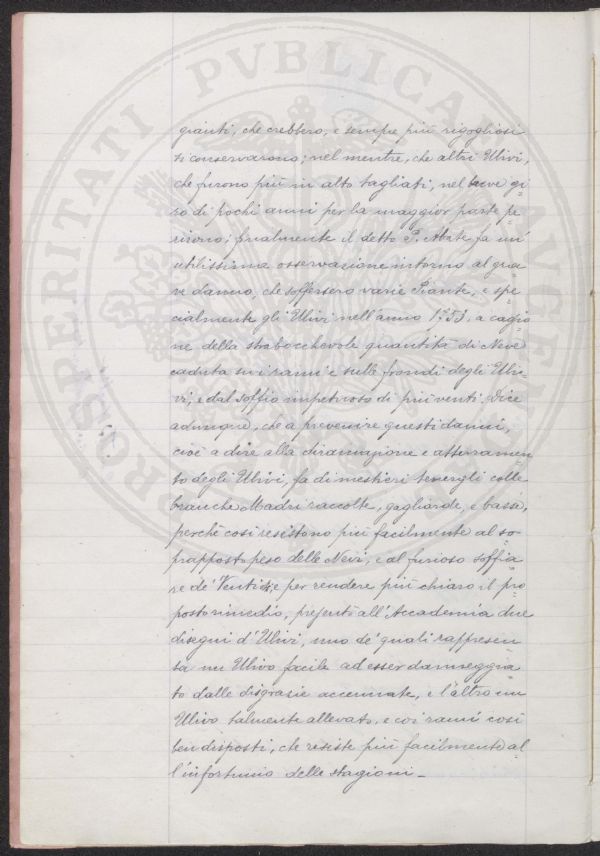 PROSPERITATI PVBLICAE AVGENDAE
gianti, che crebbero, e sempre più rigogliosi
si conservarono; nel mentre, che altri Ulivi,
che furono più in alto tagliati, nel breve gi=
ro di pochi anni per la maggior parte pe=
rirono; finalmente il detto P. Abate fa un'
utilissima osservazione intorno al gra=
ve danno, che soffersero varie Piante, e spe=
cialmente gli Ulivi nell'anno 1753, a cagio=
ne della strabocchevole quantità di Neve
caduta su i rami e sulle frondi degli Uli=
vi; e dal soffio impetuoso di più venti. Dice
adunque, che a prevenire questi danni,
cioè a dire alla diramazione e atterramen=
to degli Ulivi, fa di mestieri tenergli colle
branche Madri raccolte, gagliarde, e basse,
perchè così resistono più facilmente al so=
prapposto peso delle Nevi, e al furioso soffia=
re de' Venti; e per rendere più chiaro il pro=
posto rimedio, presentò all'Accademia due
disegni d'Ulivi, uno de' quali rappresen=
ta un Ulivo facile ad esser danneggia=
to dalle disgrazie accennate, e l'altro un
Ulivo talmente allevato, e coi rami così
ben disposti, che resiste più facilmente al=
l'infortunio delle stagioni_